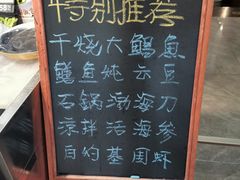 特别推荐
干烧大鲳鱼
鱼炖云豆
石锅渤海刀
凉拌活海参
白灼基围虾